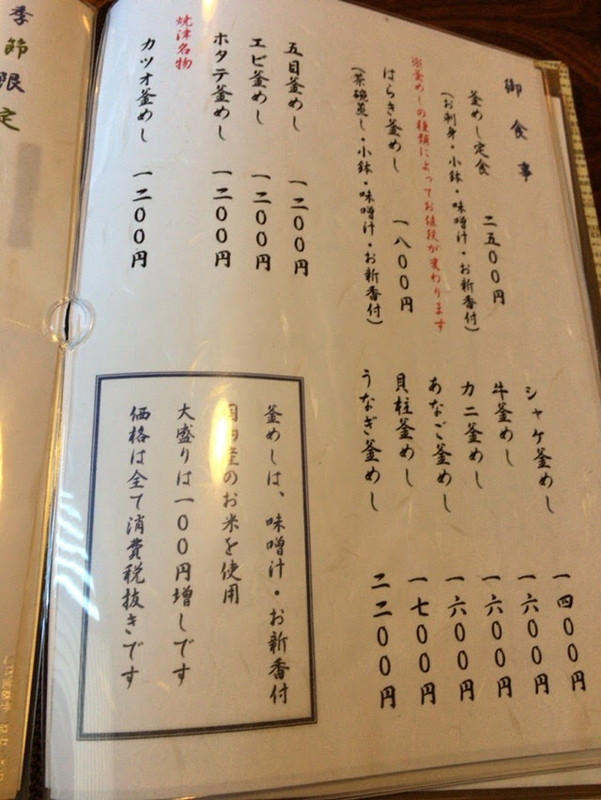 御食事
釜めし定食 二五〇〇円
(お刺身・小鉢・味噌汁・お新香付)
※釜めしの種類によってお値段が変わります
はらき釜めし 一八〇〇円
(茶碗蒸し・小鉢・味噌汁・お新香付)
五目釜めし 一二〇〇円
エビ釜めし 一二〇〇円
ホタテ釜めし 一二〇〇円
焼津名物
カツオ釜めし 一二〇〇円
シャケ釜めし 一四〇〇円
牛釜めし 一六〇〇円
カニ釜めし 一六〇〇円
あなご釜めし 一六〇〇円
貝柱釜めし 一七〇〇円
うなぎ釜めし 二二〇〇円
釜めしは、味噌汁・お新香付
国内産のお米を使用
大盛りは一〇〇円増しです
価格は全て消費税抜きです
季節限定